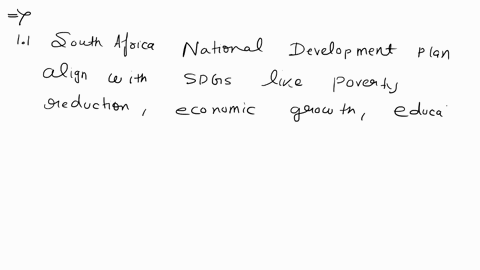 =>
1.1 South Africa National Development plan
align with SDGs like poverty
reduction, economic growth, educa